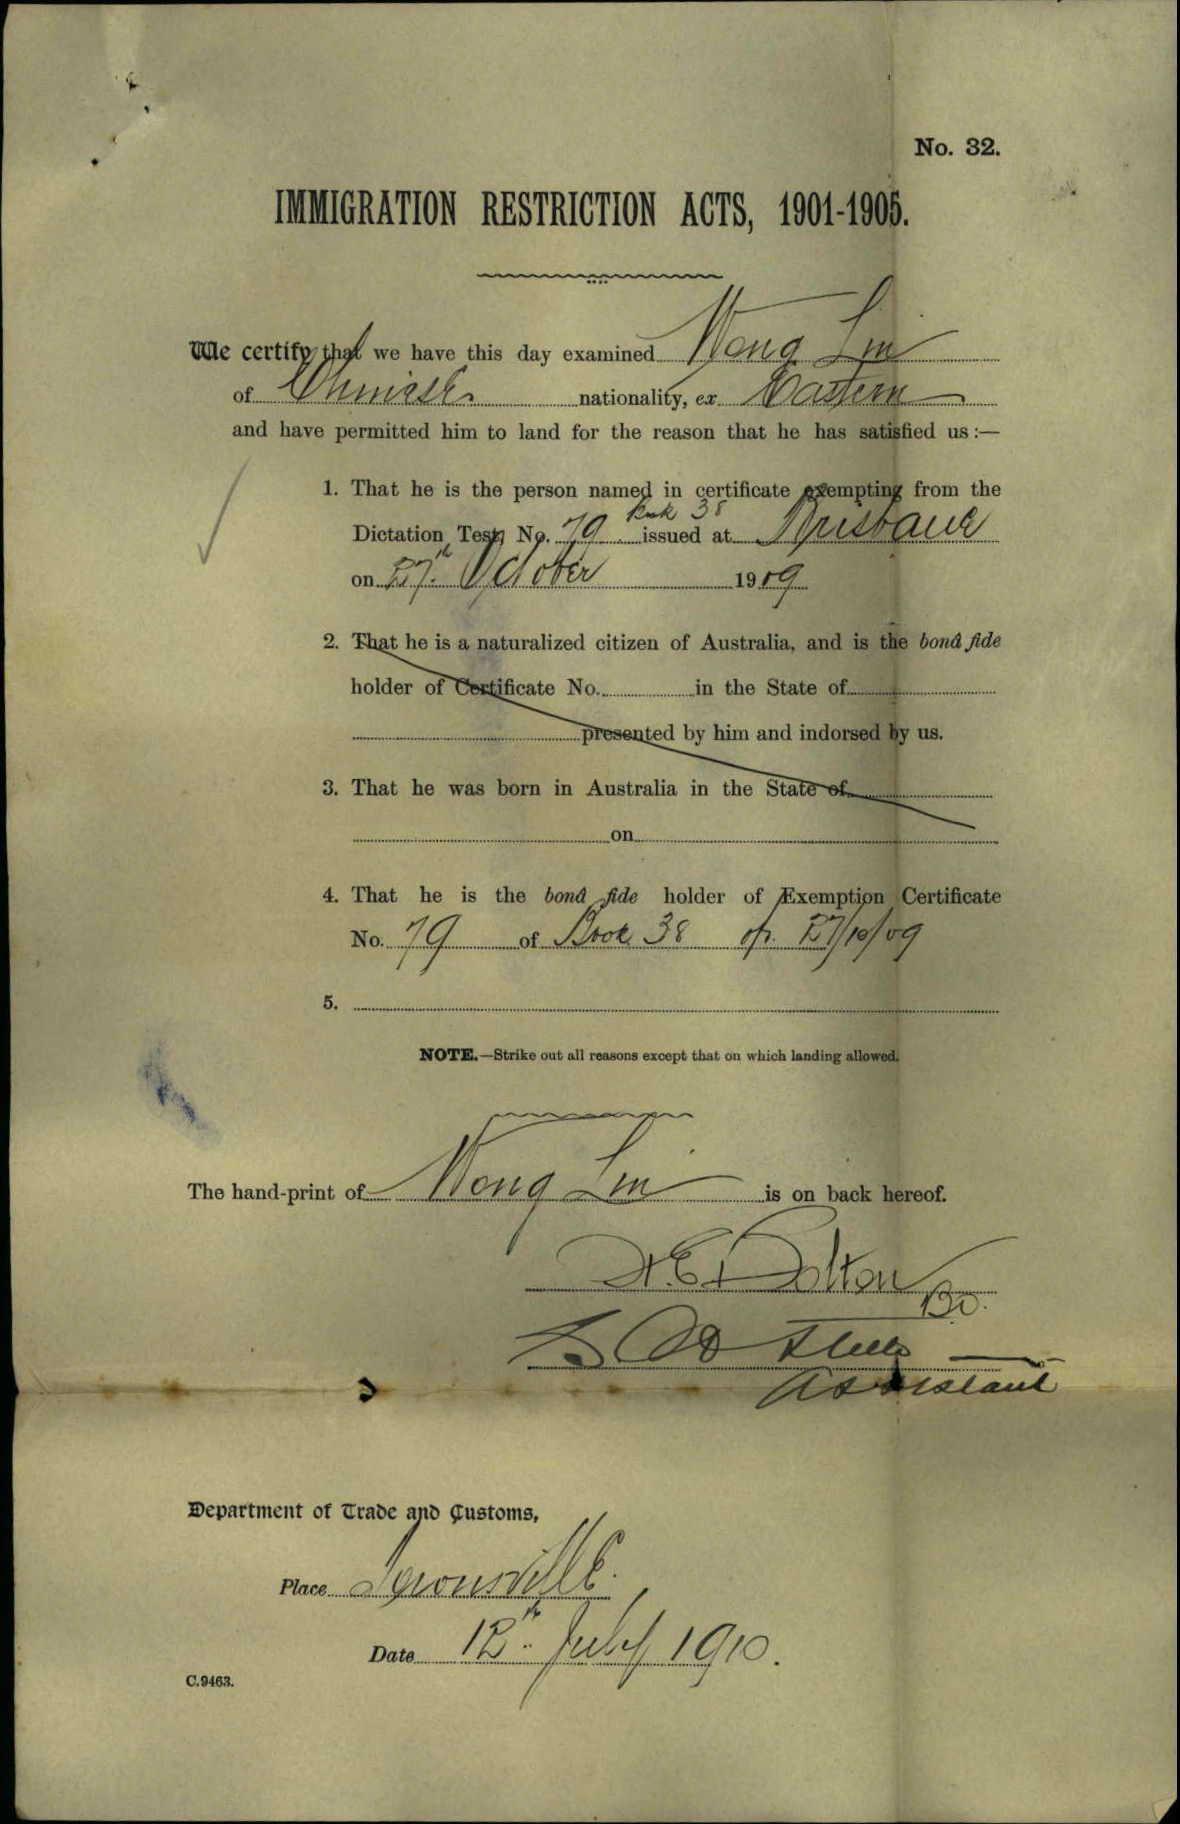 No. 32.
IMMIGRATION RESTRICTION ACTS, 1901-1905.
We certify that we have this day examined Wong Lin
of Chinese nationality, ex Eastern
and have permitted him to land for the reason that he has satisfied us :—
1. That he is the person named in certificate exempting from the
Dictation Test, No. 79 Book 38 issued at Brisbane
on 27th October 1909
2. That he is a naturalized citizen of Australia, and is the bonâ fide
holder of Certificate No. in the State of
presented by him and indorsed by us.
3. That he was born in Australia in the State of
on
4. That he is the bonâ fide holder of Exemption Certificate
No. 79 of Book 38 of 27/10/09
5.
NOTE.—Strike out all reasons except that on which landing allowed.
The hand-print of Wong Lin is on back hereof.
Assistant
Department of Trade and Customs,
Place Townsville.
Date 12th July 1910.
C.9463.